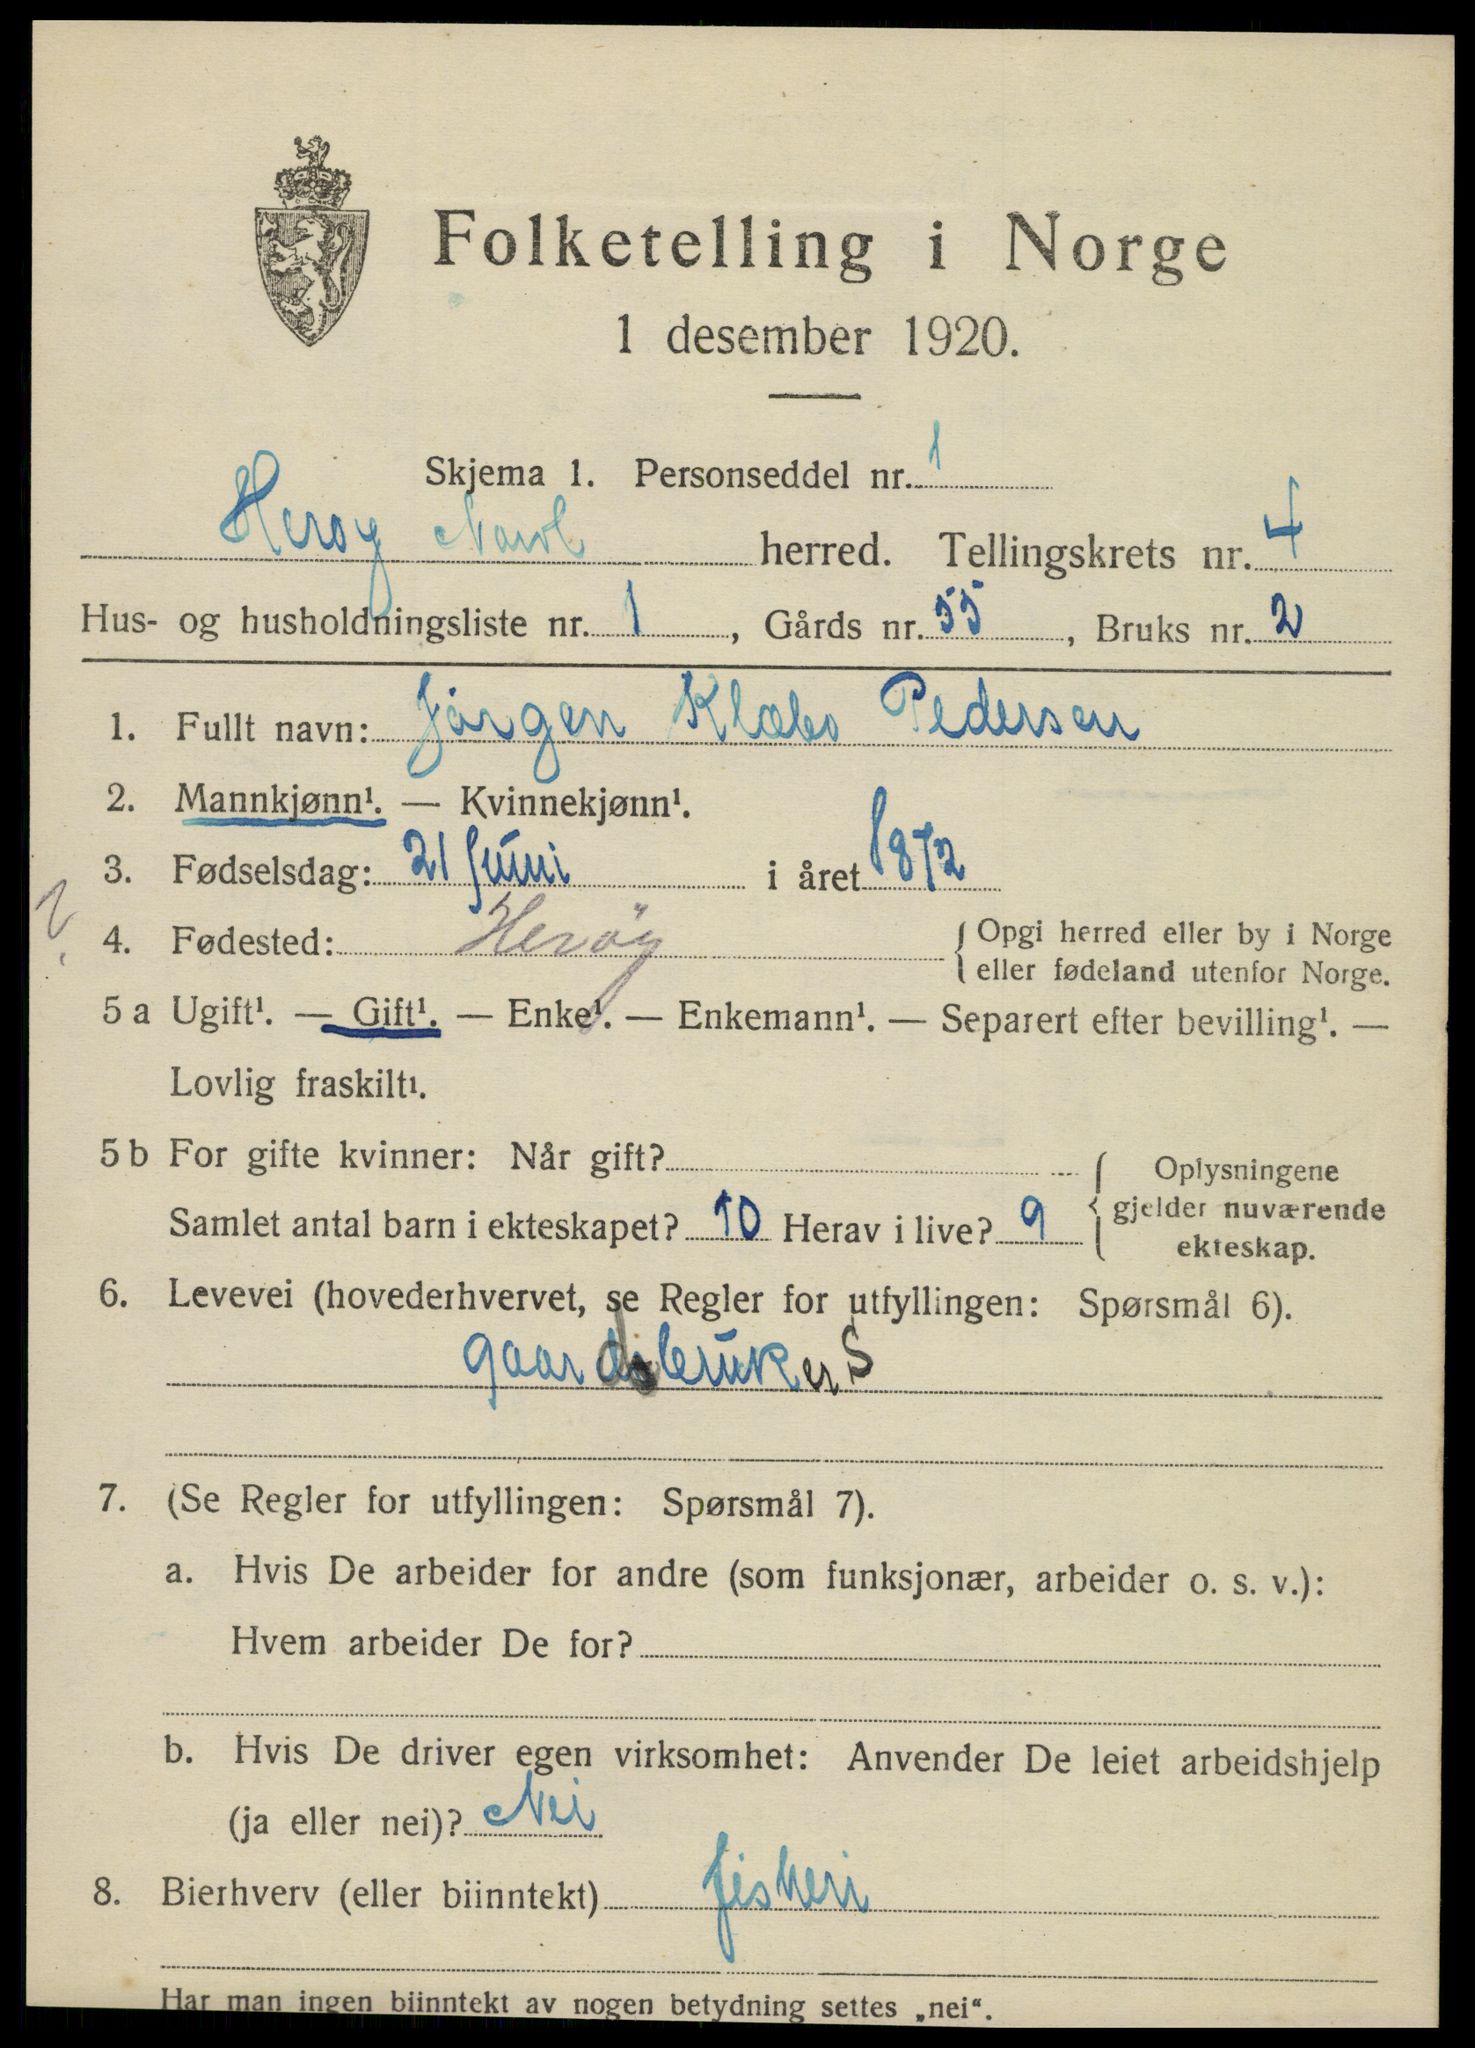 Folketelling i Norge
1 desember 1920.
Skjema 1. Personseddel nr. 1
Herøy Nordl herred. Tellingskrets nr. 4
Hus- og husholdningsliste nr. 1, Gårds nr. 55, Bruks nr. 2
1. Fullt navn: Jörgen Klæbo Pedersen
2. Mannkjønn¹. — Kvinnekjønn¹.
3. Fødselsdag: 21 Juni i året 1872
?
4. Fødested: Herøy { Opgi herred eller by i Norge
eller fødeland utenfor Norge.
5 a Ugift¹. — Gift¹. — Enke¹. — Enkemann¹. — Separert efter bevilling¹. —
Lovlig fraskilt¹.
5 b For gifte kvinner: Når gift?
Samlet antal barn i ekteskapet? 10 Herav i live? 9
{ Oplysningene
gjelder nuværende
ekteskap.
6. Levevei (hovederhvervet, se Regler for utfyllingen: Spørsmål 6).
gaardsbruker S
7. (Se Regler for utfyllingen: Spørsmål 7).
a. Hvis De arbeider for andre (som funksjonær, arbeider o. s. v.):
Hvem arbeider De for?
b. Hvis De driver egen virksomhet: Anvender De leiet arbeidshjelp
(ja eller nei)? Nei
8. Bierhverv (eller biinntekt) fiskeri
Har man ingen biinntekt av nogen betydning settes „nei“.